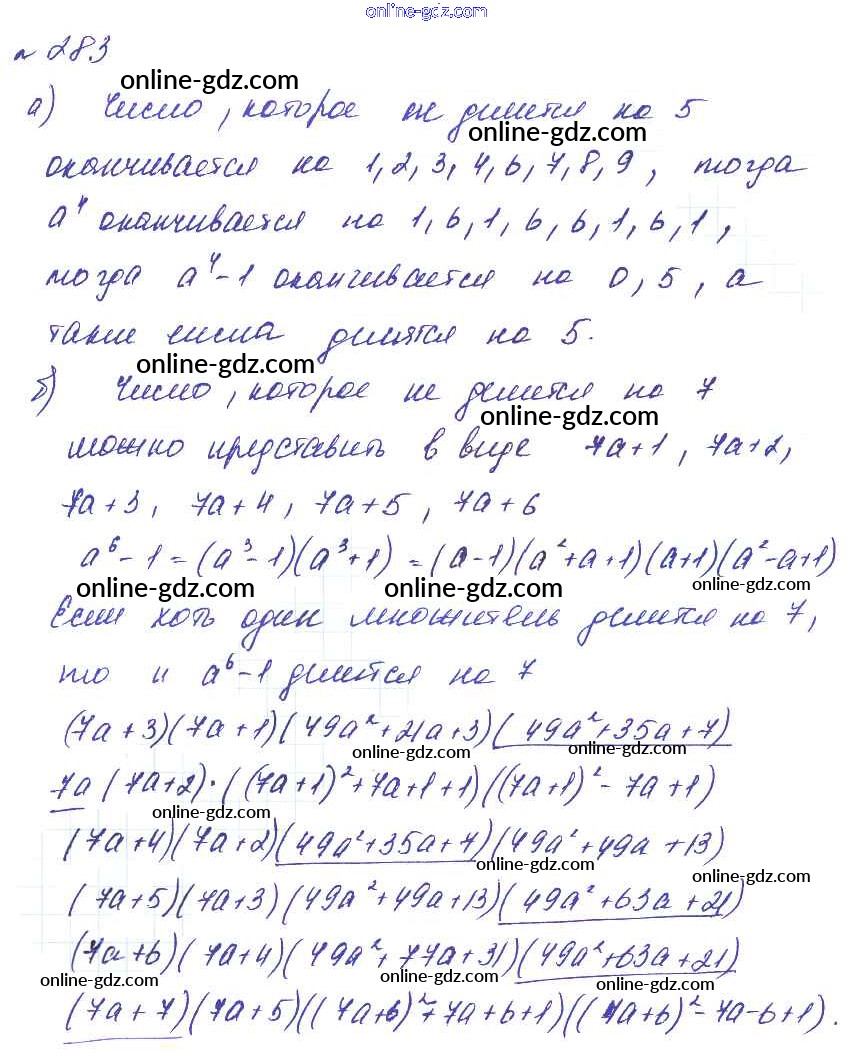 online-gdz.com
№ 283
online-gdz.com
а) Число, которое не делится на 5
online-gdz.com
оканчивается на 1, 2, 3, 4, 6, 7, 8, 9, тогда
a⁴ оканчивается на 1, 6, 1, 6, 6, 1, 6, 1,
тогда a⁴-1 оканчивается на 0, 5, а
такие числа делятся на 5.
online-gdz.com
б) Число, которое не делится на 7
online-gdz.com
можно представить в виде 7a+1, 7a+2,
7a+3, 7a+4, 7a+5, 7a+6
a⁶-1=(a³-1)(a³+1)=(a-1)(a²+a+1)(a+1)(a²-a+1)
online-gdz.com online-gdz.com online-gdz.com
Если хоть один множитель делится на 7,
то и a⁶-1 делится на 7
(7a+3)(7a+1)(49a²+21a+3)(49a²+35a+7)
online-gdz.com online-gdz.com
7a(7a+2)·((7a+1)²+7a+1+1)((7a+1)²-7a+1)
online-gdz.com
(7a+4)(7a+2)(49a²+35a+7)(49a²+49a+13)
online-gdz.com online-gdz.com
(7a+5)(7a+3)(49a²+49a+13)(49a²+63a+21)
online-gdz.com
(7a+6)(7a+4)(49a²+77a+31)(49a²+63a+21)
online-gdz.com online-gdz.com online-gdz.com
(7a+7)(7a+5)((7a+6)²+7a+6+1)((7a+6)²-7a-6+1).